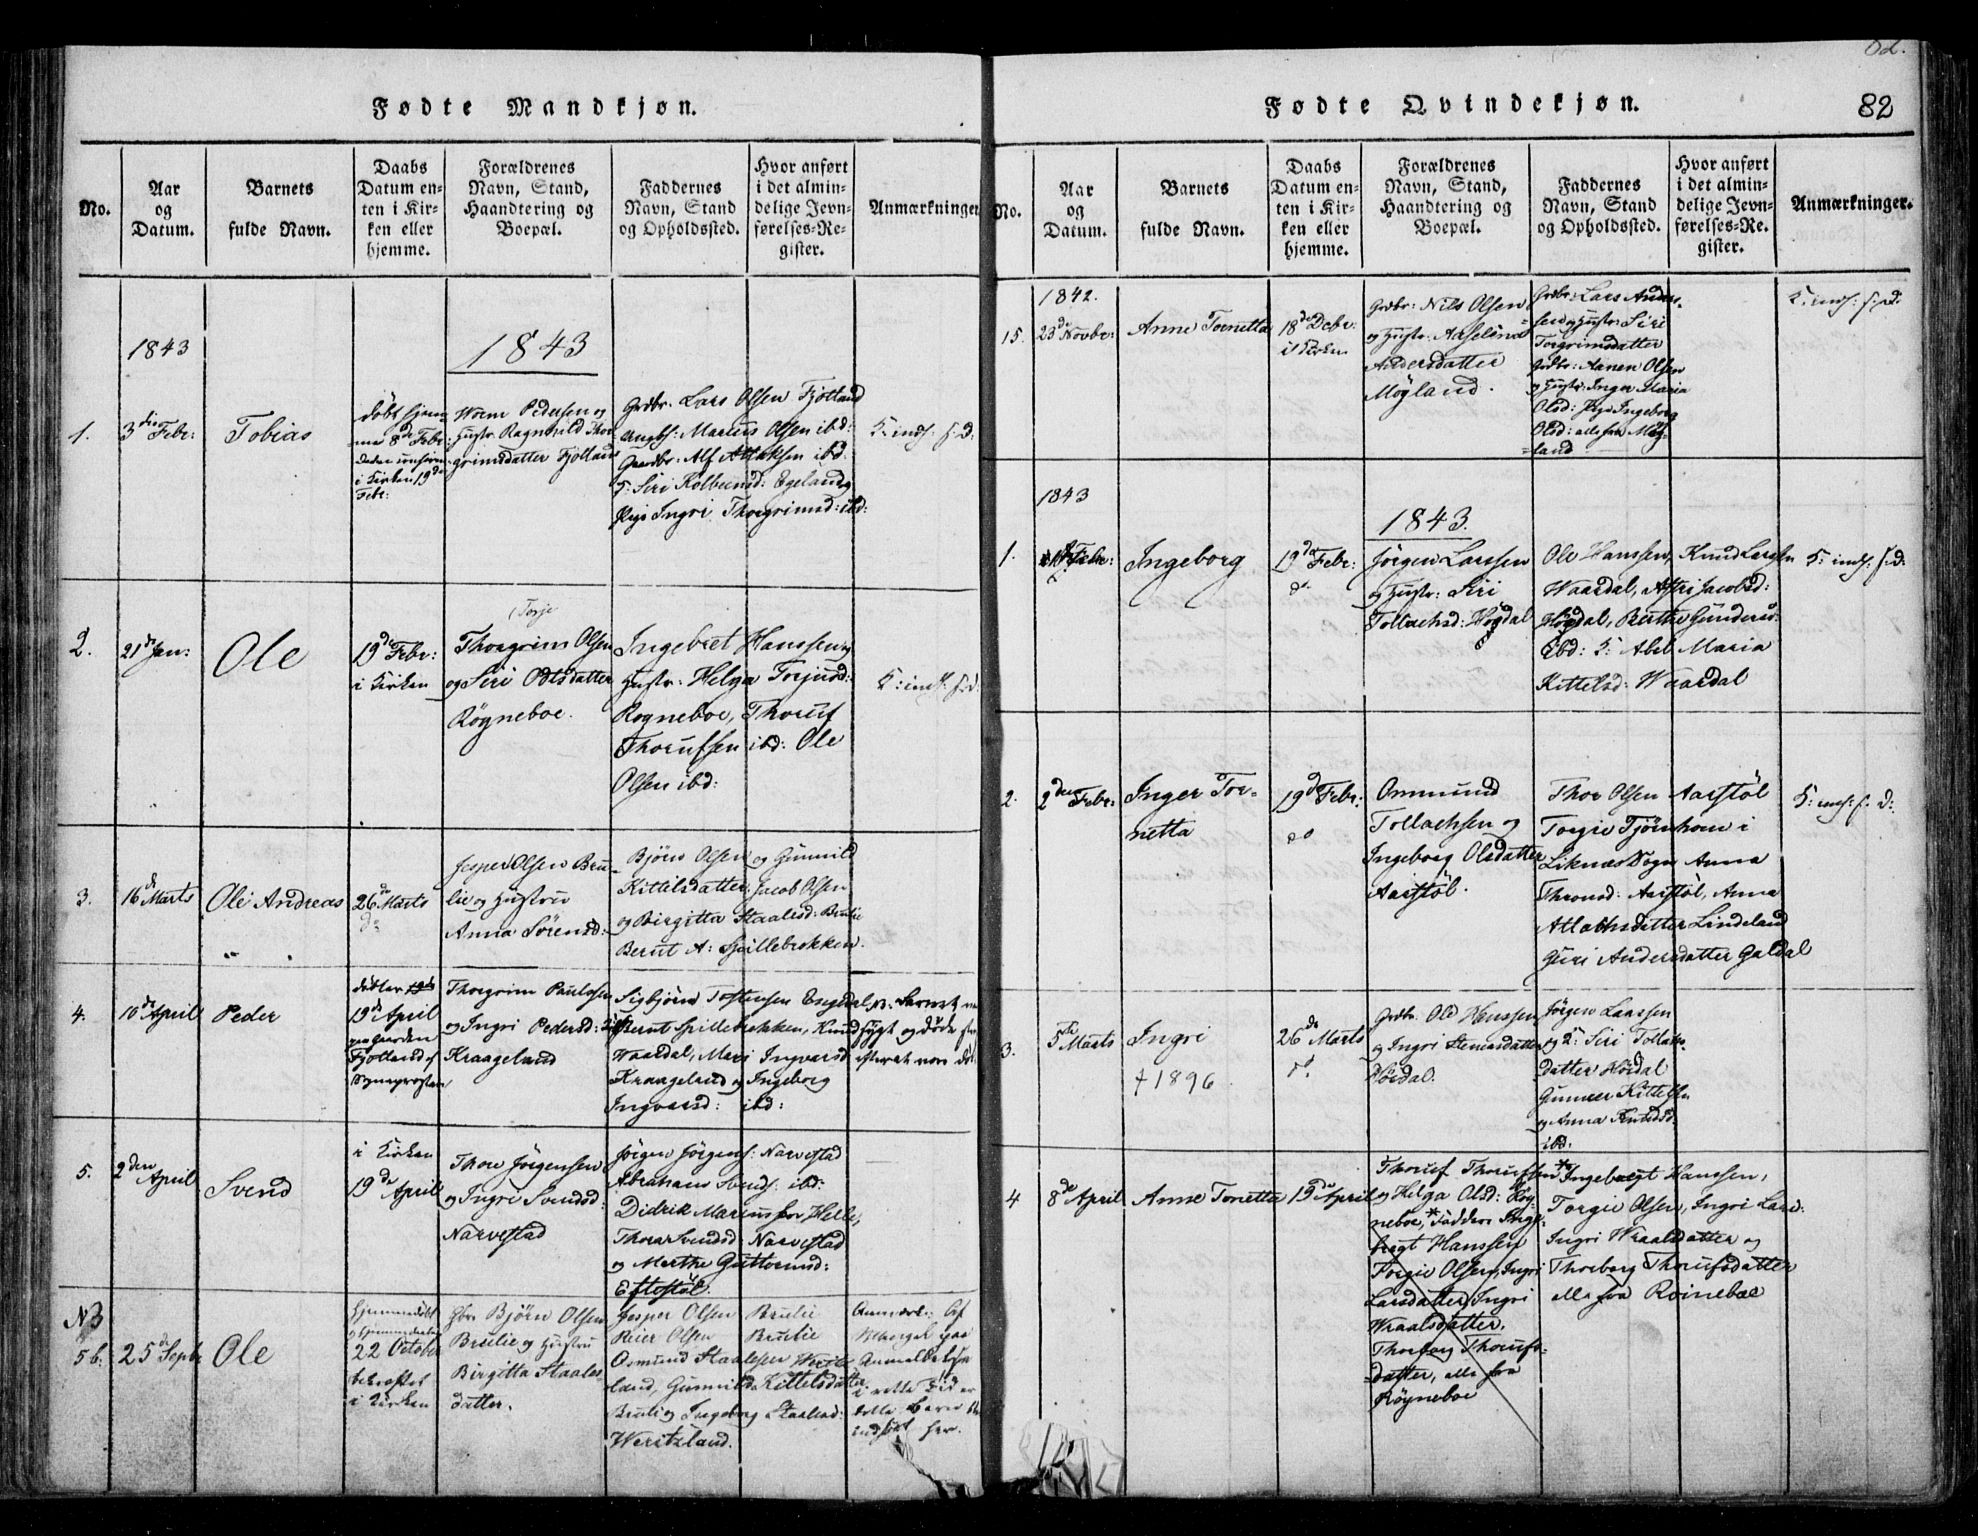 82.
Fødte Mandkjøn.
No.
Aar
og
Datum.
Barnets
fulde Navn.
Daabs
Datum en-
ten i Kir-
ken eller
hjemme.
Forældrenes
Navn, Stand,
Haandtering og
Boepæl.
Faddernes
Navn, Stand
og Opholdssted.
Hvor anført
i det almin-
delige Jevn-
førelses-Re-
gister.
Anmærkninger
1843
1843
1.
3die Febr:
Tobias
døbt hjem-
me 8de Febr:
i Kirken 19de
Febr:
Worm Pedersen og
Hustr. Ragnhild Thor-
grimsdatter Fjotland
Grdbr. Lars Olsen Fjotland
Ungk: Marius Olsen ibd:
Gaardbr: Alf Atlaksen ibd:
K: Siri Kolbeensd: Egeland
Pige Ingri Thorgrimsd: ibd:
K: inds: f: D:
2.
21de Jan:
Ole
19de Febr:
i Kirken
(Torje
Thorgrim Olsen
og Siri Odtsdatter
Røgneboe.
Ingebret Hanssen og
Hustr: Helga Torjusd:
Rogneboe, Thoruf
Thorufsen ibd: Ole
Olsen ibd:
K: inds: f: d:
3.
16de Marts
Ole Andreas
26de Marts
do
Jesper Olsen Bru-
lie og Hustrue
Anna Sørensd:
Bjørn Olsen og Gunnild
Kittilsdatter. Jacob Olsen
og Birgitta Staalesd: Brulie
Berut A: Spillebrokken.
4.
10de April
Peder
19de April
paa Gaarden
Fjotland af
Thorgrim Paulssen
og Ingri Pedersd:
Kraageland
Sigbjørn Tostensen Eegdal,
Berut Spillebrokken, Knud
Waardal, Mari Ingvarsd
Kraageland og Ingeborg
Ingvarsd: ibd:
NB. Barnet var
sygt og døde
efterat være
5.
2den April
Svend
i Kirken
19de April
Thore Jörgensen
og Ingri Svendsd:
Narvestad
Jörgen Jörgens: Narvestad
Abraham Svends: ibd:
Didrik Mariussen Helle,
Thora Svendsd: Narvestad
og Marthe Guttormsd:
Eftestöl.
N3
5b.
25de Septb
Ole
Hjemmedøbt
22 October
bekræftet
i Kirken
Gbr. Bjørn Olsen
Brulie og Hustru
Birgitta Staales-
datter.
Jesper Olsen Brulie
Reier Olsen Brulie
Osmund Staalesen Weritz-
land, Gunnild Kittelsdatter
Bruli og Ingeborg Staalesd:
Weritzland.
Anmærk: Af
Mangel paa
Anmeldelse
i rette Tid er
dette Barn
indført her.
Fødte Qvindekjøn.
82
No.
Aar
og
Datum.
Barnets
fulde Navn.
Daabs
Datum en-
ten i Kir-
ken eller
hjemme.
Forældrenes
Navn, Stand,
Haandtering og
Boepæl.
Faddernes
Navn, Stand
og Opholdssted.
Hvor anført
i det almin-
delige Jevn-
førelses-Re-
gister.
Anmærkninger.
1842.
15.
23de Novbr:
Anne Tonetta
18de Debr:
i Kirken
Grdbr: Nils Olsen
og Hustr: Adselina
Andersdatter
Mögland.
Grdbr: Lars Anders-
sen og Hustr: Siri
Torgrimsdatter
Grdbr: Aanen Olsen
og Hustr: Inger Maria
Olsd: Pige Ingeborg
Olsd: alle fra Mög-
land
K: inds: f: d:
1843
1843.
1.
Febr:
Ingeborg
19de Febr:
do
Jörgen Larssen
og Hustr: Siri
Tollachsd: Högdal
Ole Hanssen, Knud Larssen
Waardal, Assri Jacobsd:
Högdal, Berthe Gundersd:
ibd: K: Abel Maria
Kittelsd: Waardal
K: inds: f: d:
2.
2den Febr:
Inger Tor-
netta
19de Febr:
do
Ommund
Tollachsen og
Ingeborg Olsdatter
Aarstöl.
Thor Olsen Aarstöl
Torgie Tjörnhom i
Liknæs Sogn Anna
Thronsd: Aarstöl, Anna
Atlachsdatter Lindeland
Guri Andersdatter Galdal
K: inds: f: d:
3.
5te Marts
Ingri
† 1896
26de Marts
do
Grdbr. Ole Hanssen
og Ingri Stenersdatter
Hördal.
Jörgen Larssen
og K: Siri Tollaks-
datter Hördal
Gunner Kittelsen
og Anna Knudsd
ibd.
4
8de April
Anne Tonetta
19de April
Thoruf Thorufsen
og Helga Olsd: Røg-
neboe,* Faddere Inge-
bregt Hanssen
Torgie Olsen, Ingri
Larsdatter, Ingri
Wraalsdatter,
Thorborg Thorufs-
datter, alle fra
Røgneboe
* Ingebregt Hanssen,
Torgie Olsen, Ingri Larsd:
Ingri Wraalsdatter og
Thorborg Thorufsdatter
alle fra Roinebae